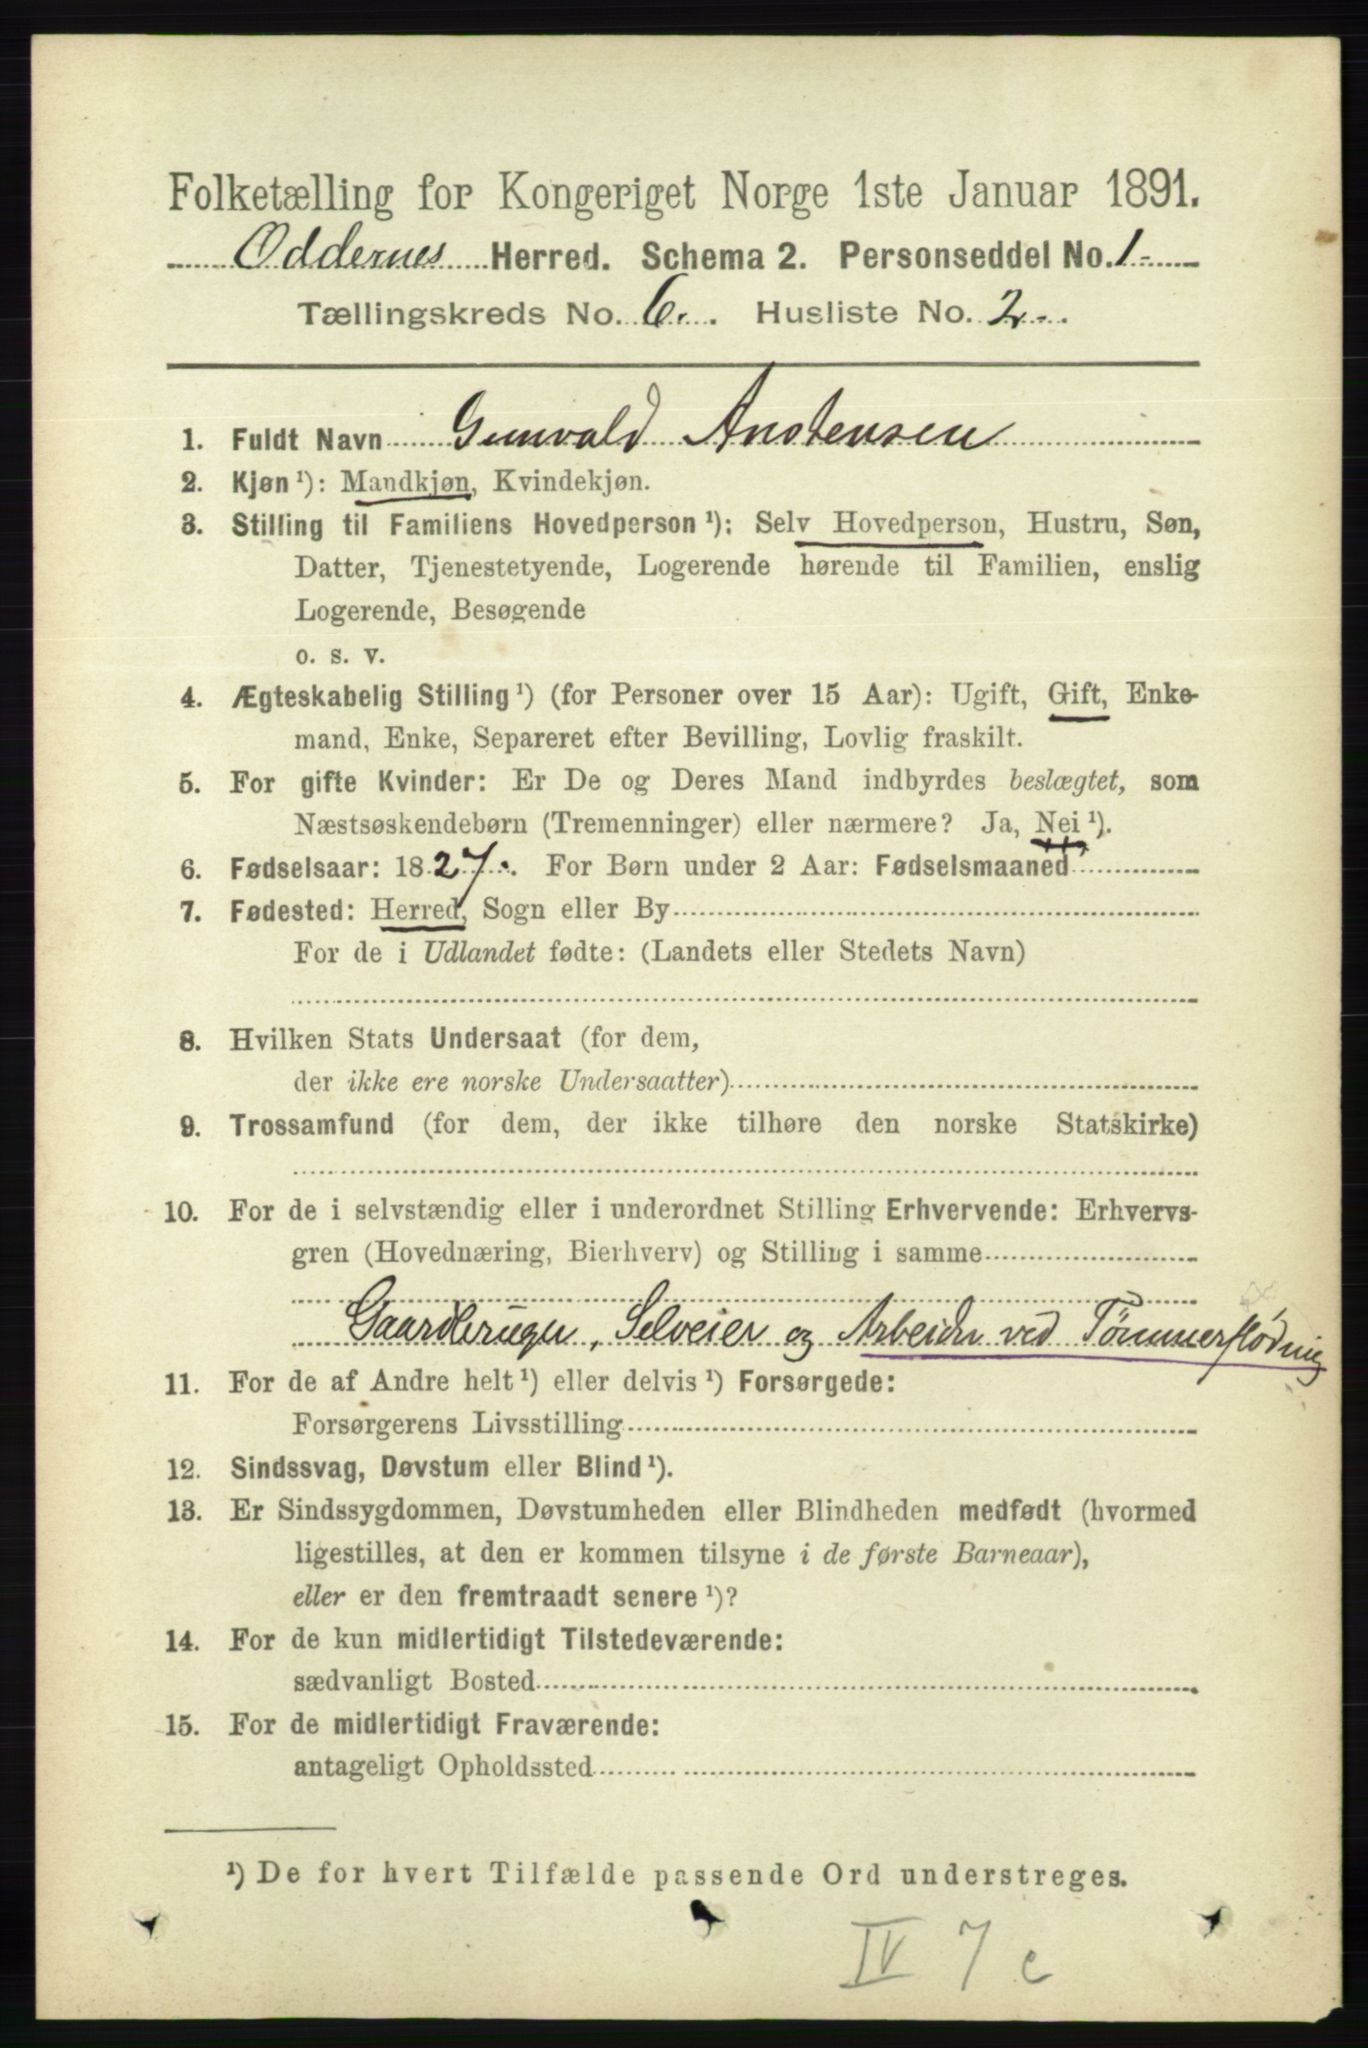 Folketælling for Kongeriget Norge 1ste Januar 1891.
Oddernes Herred. Schema 2. Personseddel No. 1
Tællingskreds No. 6. Husliste No. 2
1. Fuldt Navn Gunvald Anstensen
2. Kjøn ¹): Mandkjøn, Kvindekjøn.
3. Stilling til Familiens Hovedperson ¹): Selv Hovedperson, Hustru, Søn,
Datter, Tjenestetyende, Logerende hørende til Familien, enslig
Logerende, Besøgende
o. s. v.
4. Ægteskabelig Stilling ¹) (for Personer over 15 Aar): Ugift, Gift, Enke-
mand, Enke, Separeret efter Bevilling, Lovlig fraskilt.
5. For gifte Kvinder: Er De og Deres Mand indbyrdes beslægtet, som
Næstsøskendebørn (Tremenninger) eller nærmere? Ja, Nei ¹).
6. Fødselsaar: 1827. For Børn under 2 Aar: Fødselsmaaned
7. Fødested: Herred, Sogn eller By
For de i Udlandet fødte: (Landets eller Stedets Navn)
8. Hvilken Stats Undersaat (for dem,
der ikke ere norske Undersaatter)
9. Trossamfund (for dem, der ikke tilhøre den norske Statskirke)
10. For de i selvstændig eller i underordnet Stilling Erhvervende: Erhvervs-
gren (Hovednæring, Bierhverv) og Stilling i samme
Gaardbruger, Selveier og Arbeider ved Tømmerflødning
11. For de af Andre helt ¹) eller delvis ¹) Forsørgede:
Forsørgerens Livsstilling
12. Sindssvag, Døvstum eller Blind ¹).
13. Er Sindssygdommen, Døvstumheden eller Blindheden medfødt (hvormed
ligestilles, at den er kommen tilsyne i de første Barneaar),
eller er den fremtraadt senere ¹)?
14. For de kun midlertidigt Tilstedeværende:
sædvanligt Bosted
15. For de midlertidigt Fraværende:
antageligt Opholdssted
¹) De for hvert Tilfælde passende Ord understreges.
IV 7 c